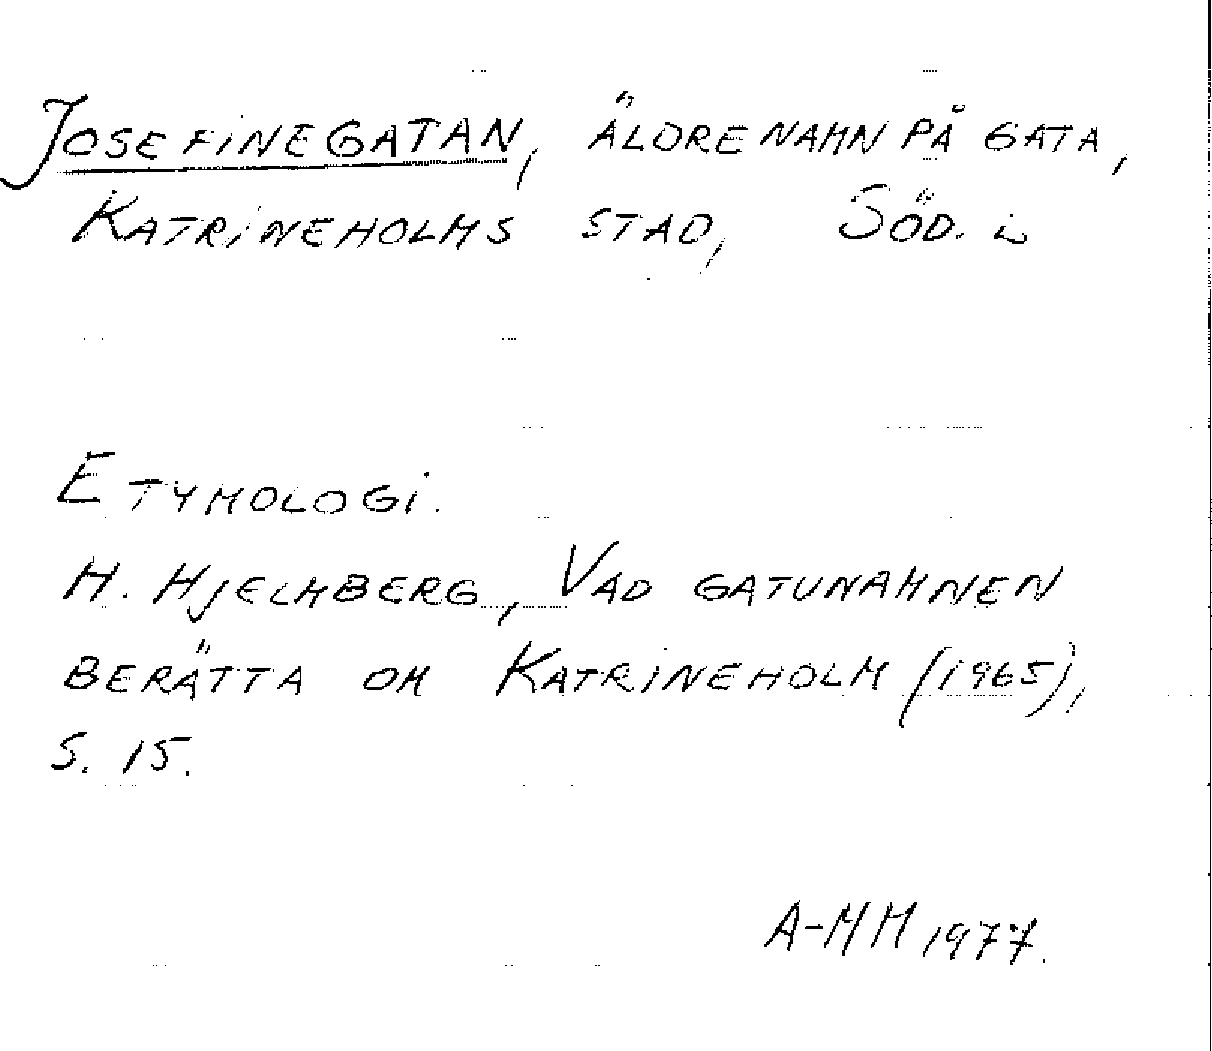 JOSEFINEGATAN, ÄLDRE NAMN PÅ GATA,
KATRINEHOLMS STAD, SÖD. L
ETYMOLOGI.
H. HJELMBERG, VAD GATUNAMNEN
BERÄTTA OM KATRINEHOLM (1965),
S. 15.
A-MM 1977.